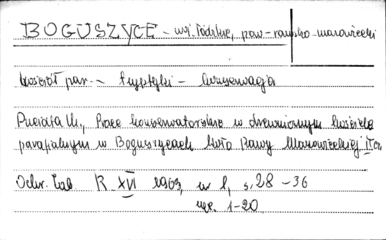 BOGUSZYCE - woj. łódzkie, pow. rawsko-mazowiecki
kościół par. - tryptyki - konserwacja
Prace konserwatorskie w drewnianym kościele
parafialnym w Boguszycach koło Rawy Mazowieckiej
Ochr. Zab. R. XVI 1963, nr 1, s. 28-36
1-20